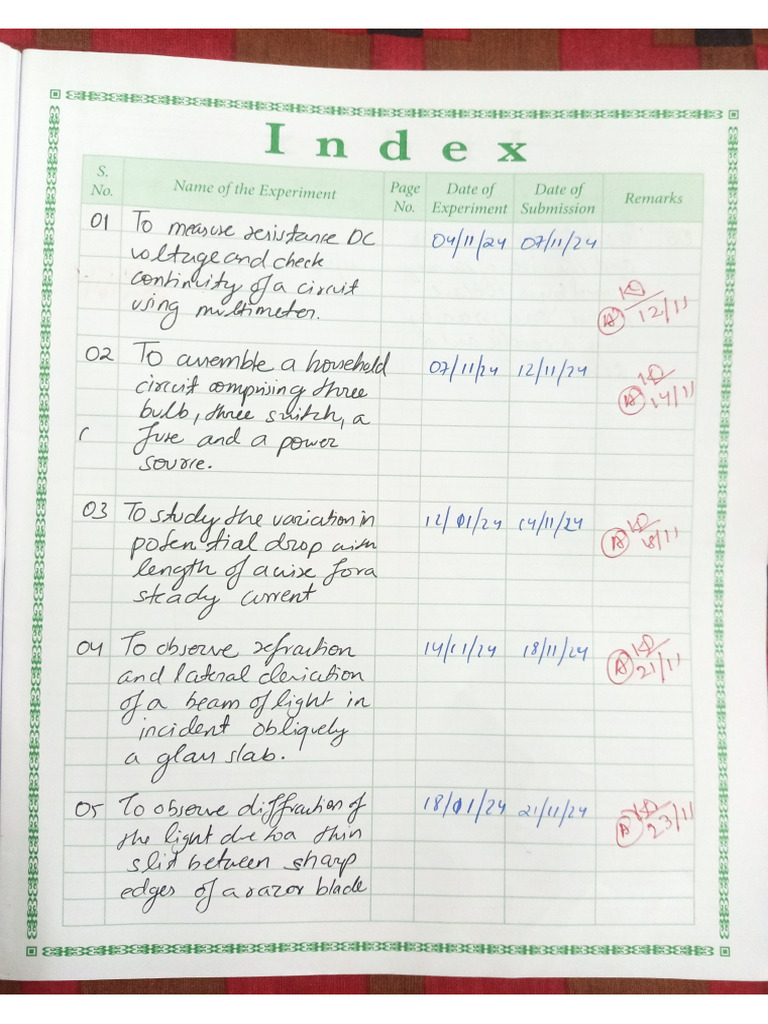 Index
S. No.
Name of the Experiment
Page No.
Date of Experiment
Date of Submission
Remarks
01 To measure resistance DC 04/11/24 07/11/24
voltage and check
continuity of a circuit
using multimeter. A 12/11
02 To assemble a household 07/11/24 12/11/24
circuit comprising three A 14/11
bulb, three switch, a
fuse and a power
source.
03 To study the variation in 12/01/24 14/11/24
potential drop with A 18/11
length of a wire for a
steady current
04 To observe refraction 14/11/24 18/11/24
and lateral deviation A 21/11
of a beam of light in
incident obliquely
a glass slab.
05 To observe diffraction of 18/01/24 21/11/24
the light due to a thin A 23/11
slit between sharp
edges of a razor blade